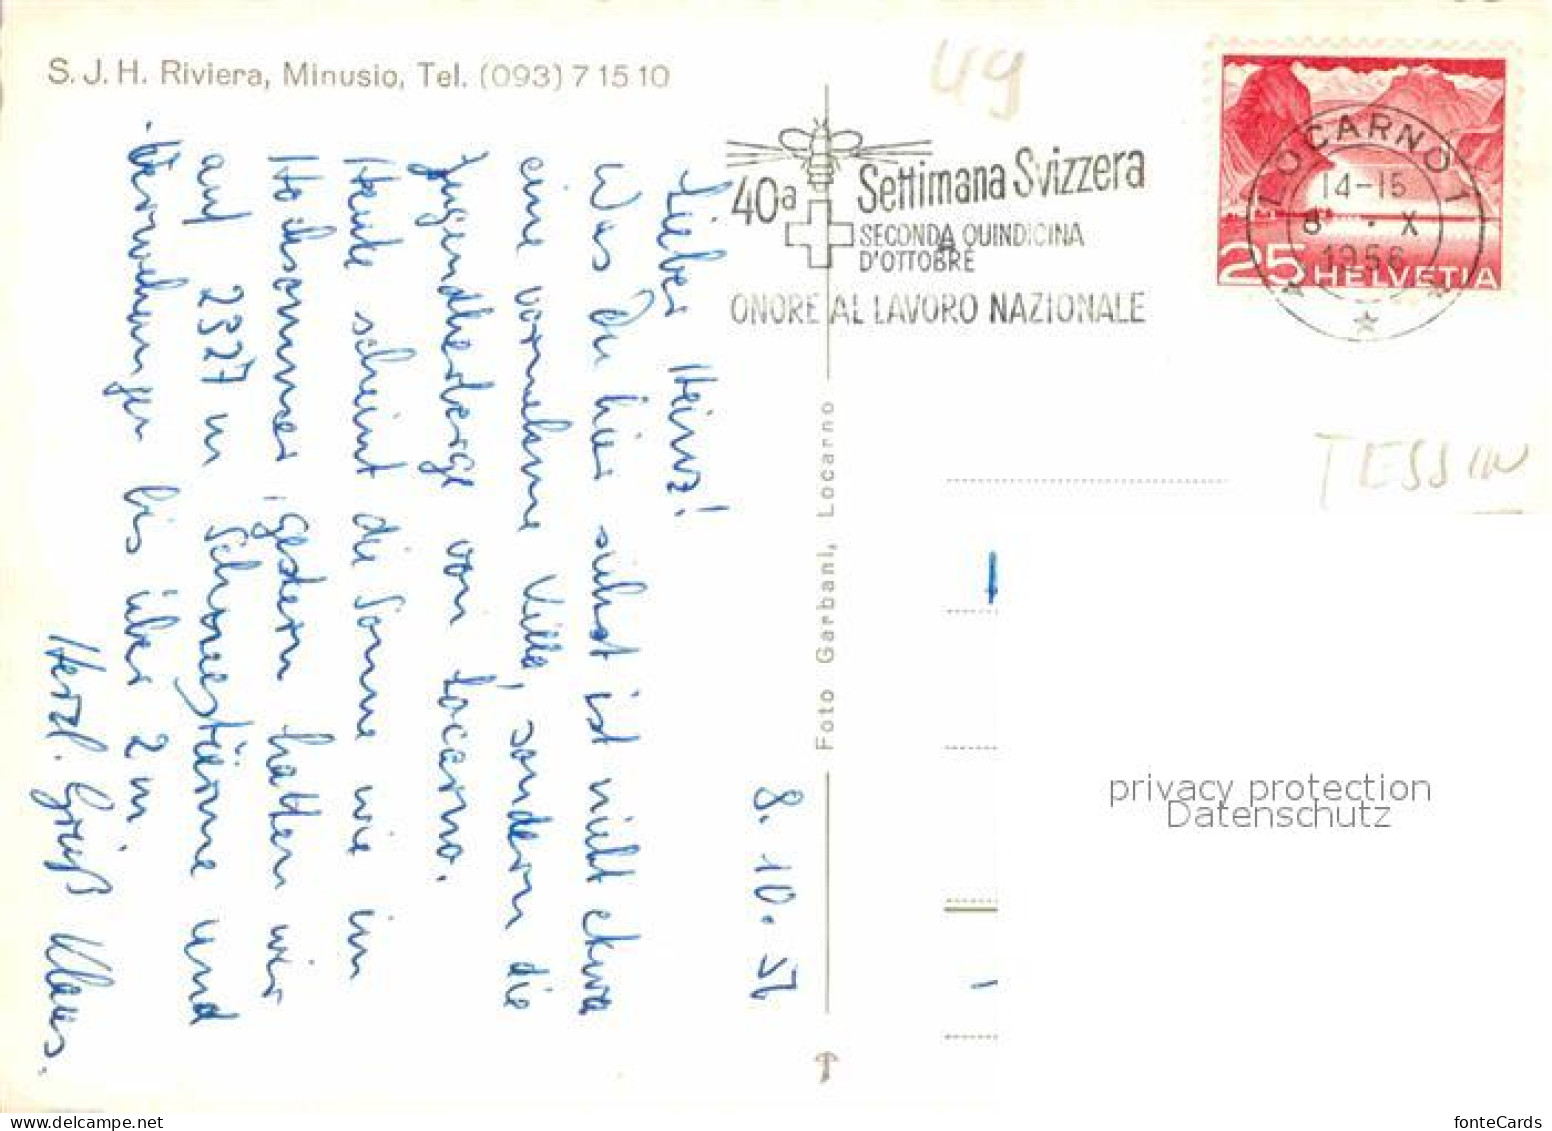 S. J. H. Riviera, Minusio, Tel. (093) 7 15 10
49
40a Settimana Svizzera
SECONDA QUINDICINA
D'OTTOBRE
ONORE AL LAVORO NAZIONALE
LOCARNO 1
14-15
8 · X
1956
25 HELVETIA
TESSIN
Foto Garbani, Locarno
8. 10. 56
Lieber Heinz!
Was Du hier siehst ist nicht etwa
eine vornehme Villa, sondern die
Jugendherberge von Locarno.
Heute scheint die Sonne wie im
Hochsommer, gestern hatten wir
auf 2327 m Schneestürme und
Verwehungen bis über 2 m.
Herzl. Grüß Klaus.
privacy protection
Datenschutz
fonteCards